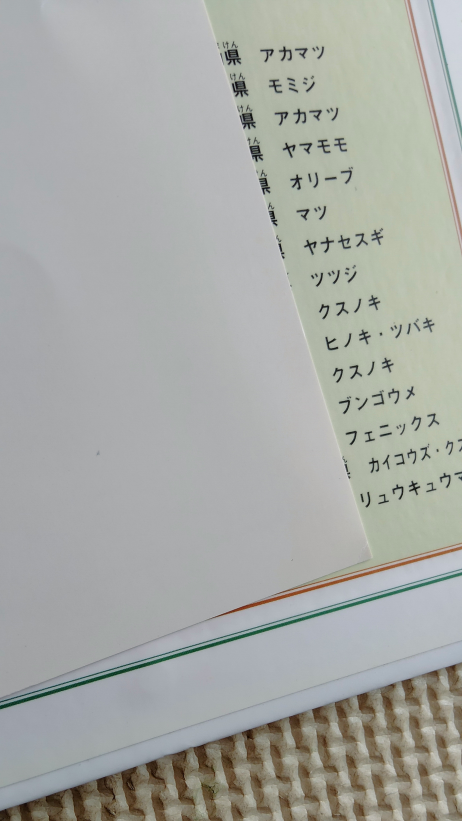 県 アカマツ
県 モミジ
県 アカマツ
県 ヤマモモ
県 オリーブ
マツ
ヤナセスギ
ツツジ
クスノキ
ヒノキ・ツバキ
クスノキ
ブンゴウメ
フェニックス
カイコウズ・クス
リュウキュウマ